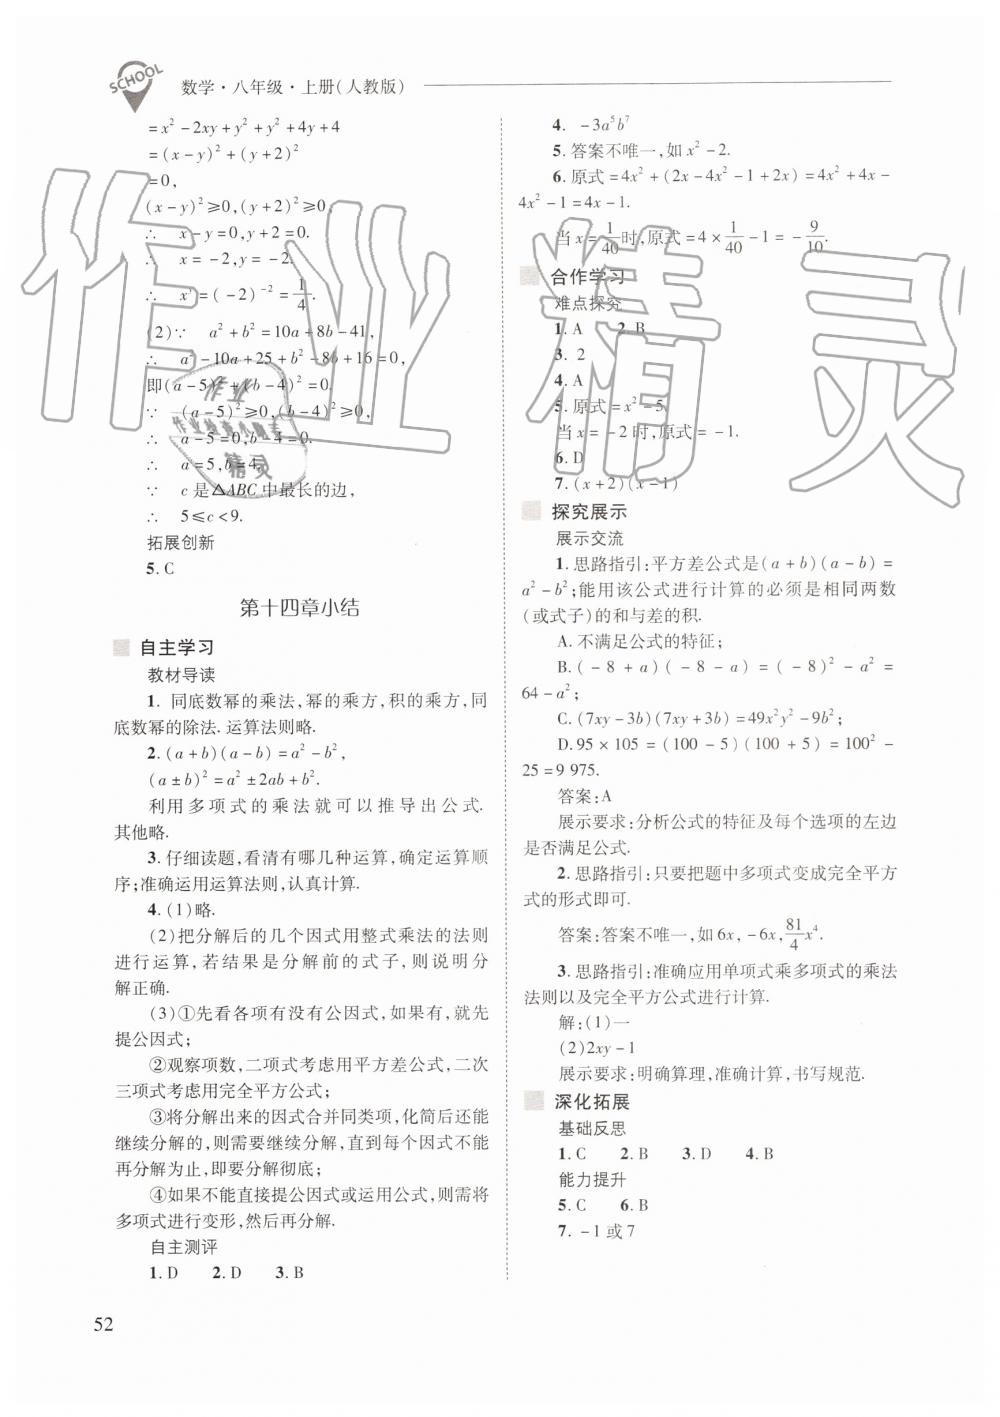 SCHOOL
数学·八年级·上册(人教版)
=x²-2xy+y²+y²+4y+4
=(x-y)²+(y+2)²
=0,
(x-y)²≥0,(y+2)²≥0,
∴ x-y=0,y+2=0.
∴ x=-2,y=-2.
∴ xʸ=(-2)⁻²=1/4.
(2)∵ a²+b²=10a+8b-41,
∴ a²-10a+25+b²-8b+16=0,
即(a-5)²+(b-4)²=0.
∵ (a-5)²≥0,(b-4)²≥0,
∴ a-5=0,b-4=0.
∴ a=5,b=4,
∵ c是△ABC中最长的边,
∴ 5≤c<9.
拓展创新
5. C
第十四章小结
自主学习
教材导读
1. 同底数幂的乘法,幂的乘方,积的乘方,同
底数幂的除法. 运算法则略.
2. (a+b)(a-b)=a²-b²,
(a±b)²=a²±2ab+b².
利用多项式的乘法就可以推导出公式.
其他略.
3. 仔细读题,看清有哪几种运算,确定运算顺
序;准确运用运算法则,认真计算.
4. (1)略.
(2)把分解后的几个因式用整式乘法的法则
进行运算,若结果是分解前的式子,则说明分
解正确.
(3)①先看各项有没有公因式,如果有,就先
提公因式;
②观察项数,二项式考虑用平方差公式,二次
三项式考虑用完全平方公式;
③将分解出来的因式合并同类项,化简后还能
继续分解的,则需要继续分解,直到每个因式不能
再分解为止,即要分解彻底;
④如果不能直接提公因式或运用公式,则需将
多项式进行变形,然后再分解.
自主测评
1. D 2. D 3. B
4. -3a⁵b⁷
5. 答案不唯一,如x²-2.
6. 原式=4x²+(2x-4x²-1+2x)=4x²+4x-
4x²-1=4x-1.
当x=1/40时,原式=4×1/40-1=-9/10.
合作学习
难点探究
1. A 2. B
3. 2
4. A
5. 原式=x²-5.
当x=-2时,原式=-1.
6. D
7. (x+2)(x-1)
探究展示
展示交流
1. 思路指引:平方差公式是(a+b)(a-b)=
a²-b²;能用该公式进行计算的必须是相同两数
(或式子)的和与差的积.
A. 不满足公式的特征;
B. (-8+a)(-8-a)=(-8)²-a²=
64-a²;
C. (7xy-3b)(7xy+3b)=49x²y²-9b²;
D. 95×105=(100-5)(100+5)=100²-
25=9 975.
答案:A
展示要求:分析公式的特征及每个选项的左边
是否满足公式.
2. 思路指引:只要把题中多项式变成完全平方
式的形式即可.
答案:答案不唯一,如6x,-6x,81/4x⁴.
3. 思路指引:准确应用单项式乘多项式的乘法
法则以及完全平方公式进行计算.
解:(1)一
(2)2xy-1
展示要求:明确算理,准确计算,书写规范.
深化拓展
基础反思
1. C 2. B 3. D 4. B
能力提升
5. C 6. B
7. -1或7
52
作业精灵
作业
精灵